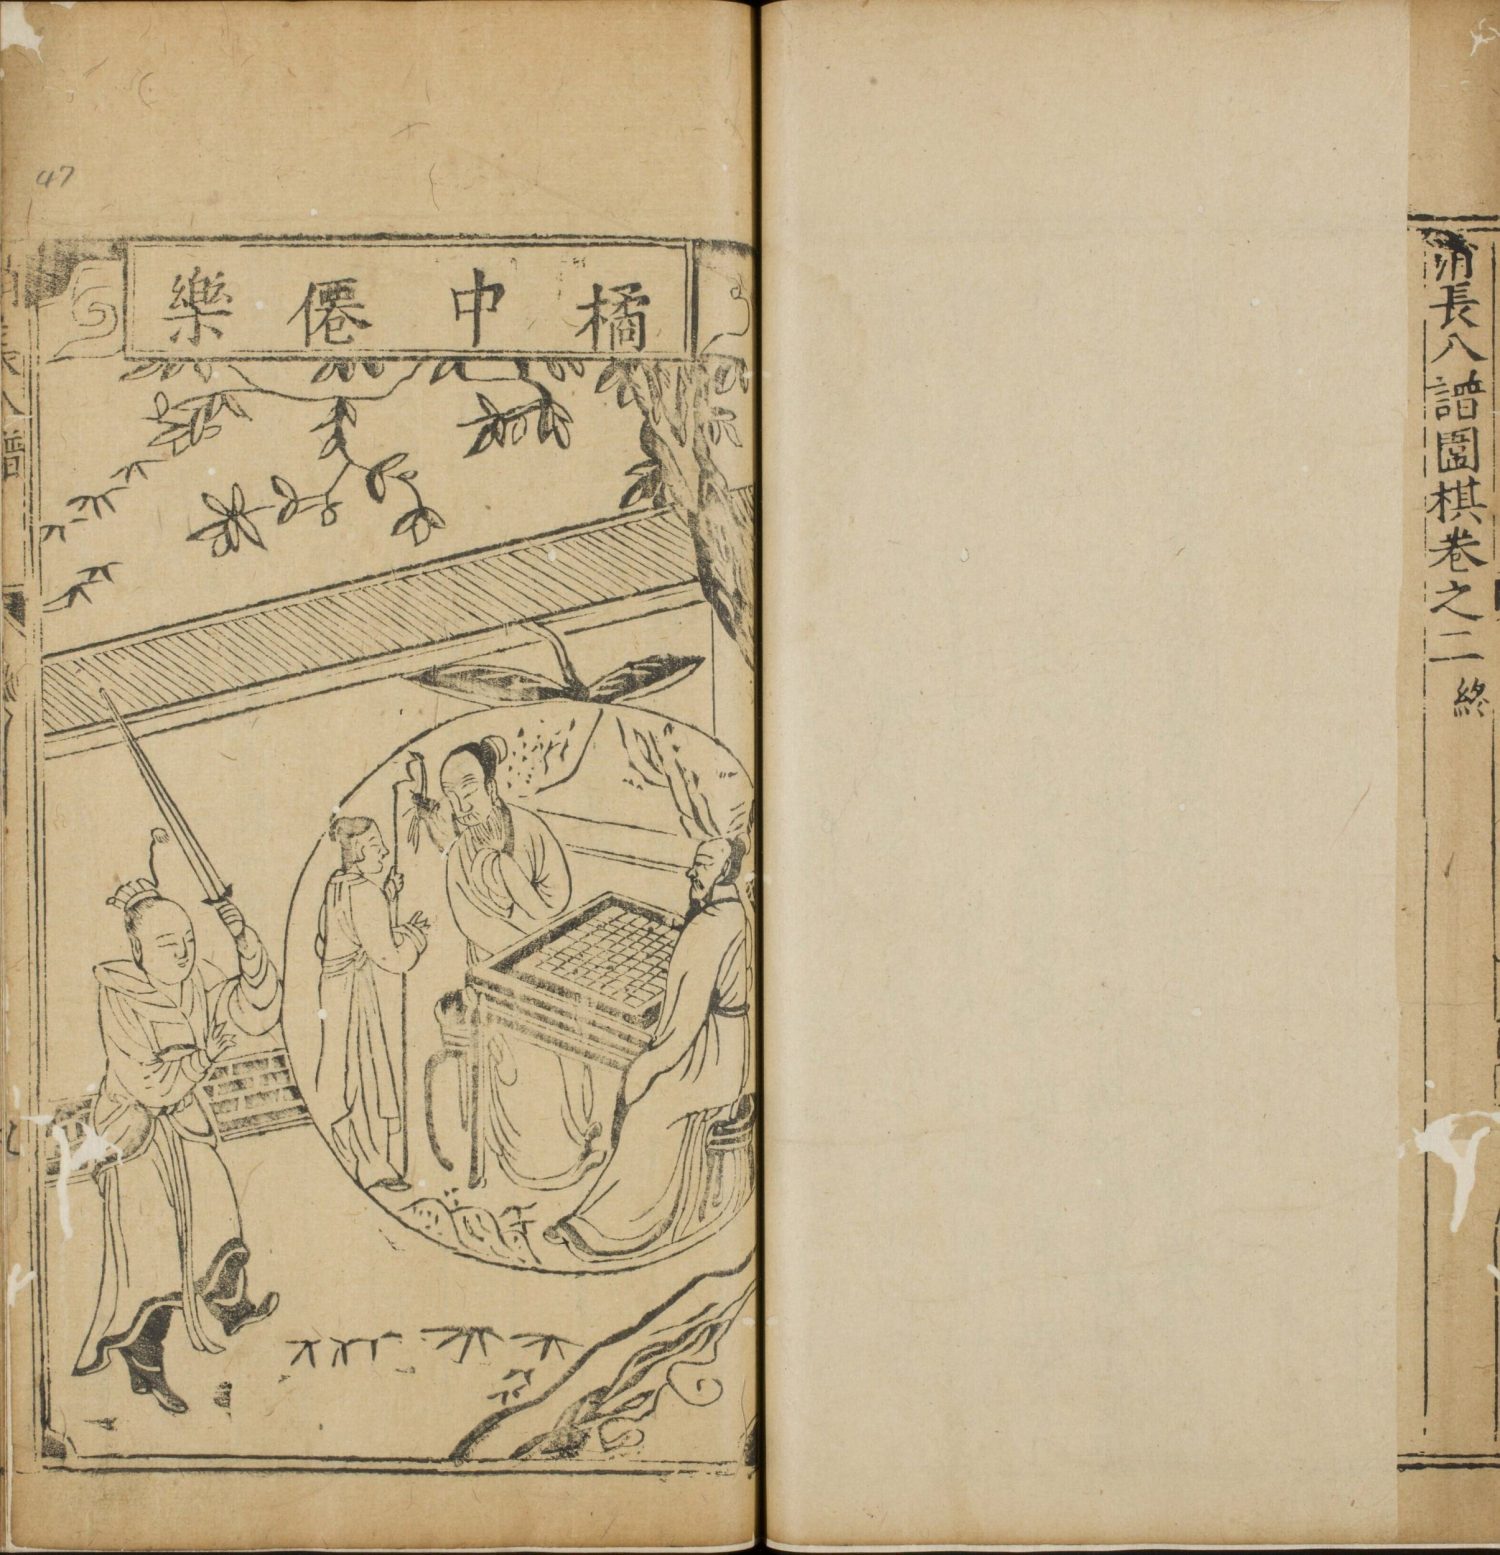 消長八譜圍棋卷之二終
47
橘中僊樂
長八譜